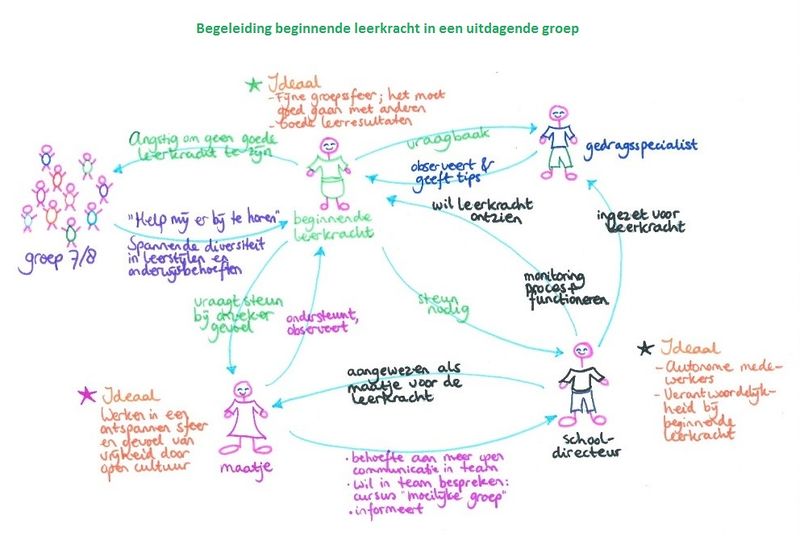 Begeleiding beginnende leerkracht in een uitdagende groep
Ideaal
- Fijne groepssfeer; het moet
goed gaan met anderen
- Goede leerresultaten
Angstig om geen goede
leerkracht te zijn
vraagbaak
gedragsspecialist
observeert &
geeft tips
wil leerkracht
ontzien
ingezet voor
leerkracht
"Help mij er bij te horen"
beginnende
leerkracht
groep 7/8
Spannende diversiteit
in leerstijlen en
onderwijsbehoeften
monitoring
proces &
functioneren
vraagt steun
bij onzeker
gevoel
ondersteunt,
observeert
steun
nodig
Ideaal
- Autonome mede-
werkers
- Verantwoordelijk-
heid bij
beginnende
leerkracht
aangewezen als
maatje voor de
leerkracht
Ideaal
Werken in een
ontspannen sfeer
en gevoel van
vrijheid door
open cultuur
maatje
school-
directeur
• behoefte aan meer open
communicatie in team
• wil in team bespreken:
cursus "moeilijke groep"
• informeert